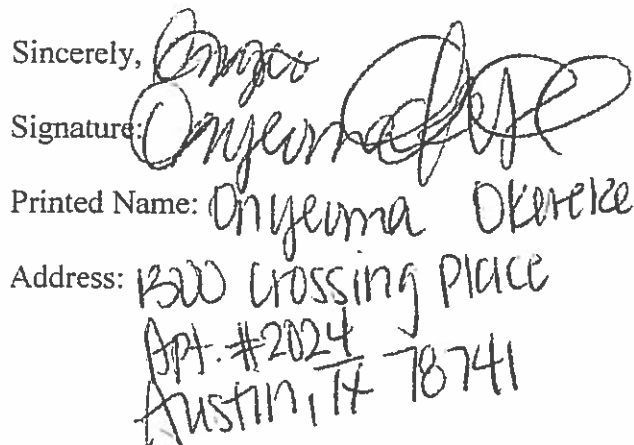 Sincerely,
Signature: Onyeoma
Printed Name: Onyeoma Okereke
Address: 1300 Crossing Place
Apt. #2024
Austin, TX 78741